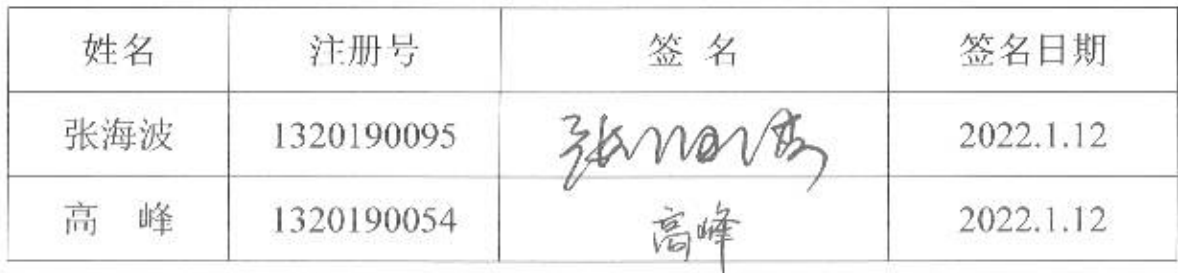 姓名 注册号 签 名 签名日期
张海波 1320190095 2022.1.12
高 峰 1320190054 高峰 2022.1.12